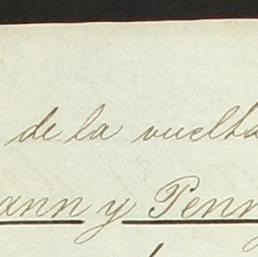 de la vuelta
ann y Penn